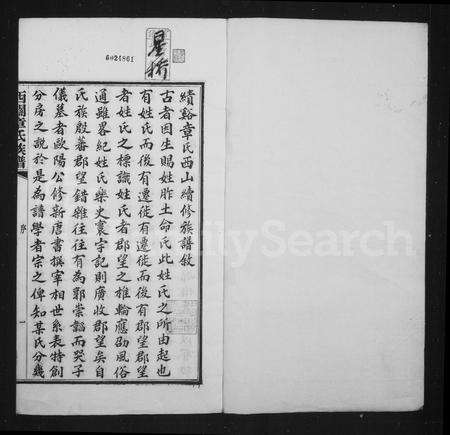 星橋
6024861
績谿章氏西山續修族譜敘
古者因生賜姓胙土命氏此姓氏之所由起也
有姓氏而後有遷徙有遷徙而後有郡望郡望
者姓氏之標識姓氏者郡望之椎輪應劭風俗
通雖畧紀姓氏樂史寰宇記則廣收郡望矣自
氏族殷蕃郡望錯雜往往有為郭崇韜而哭子
儀墓者歐陽公修新唐書撰宰相世系表特創
分房之說於是為譜學者宗之俾知某氏分幾
西關章氏族譜
序
一
FamilySearch